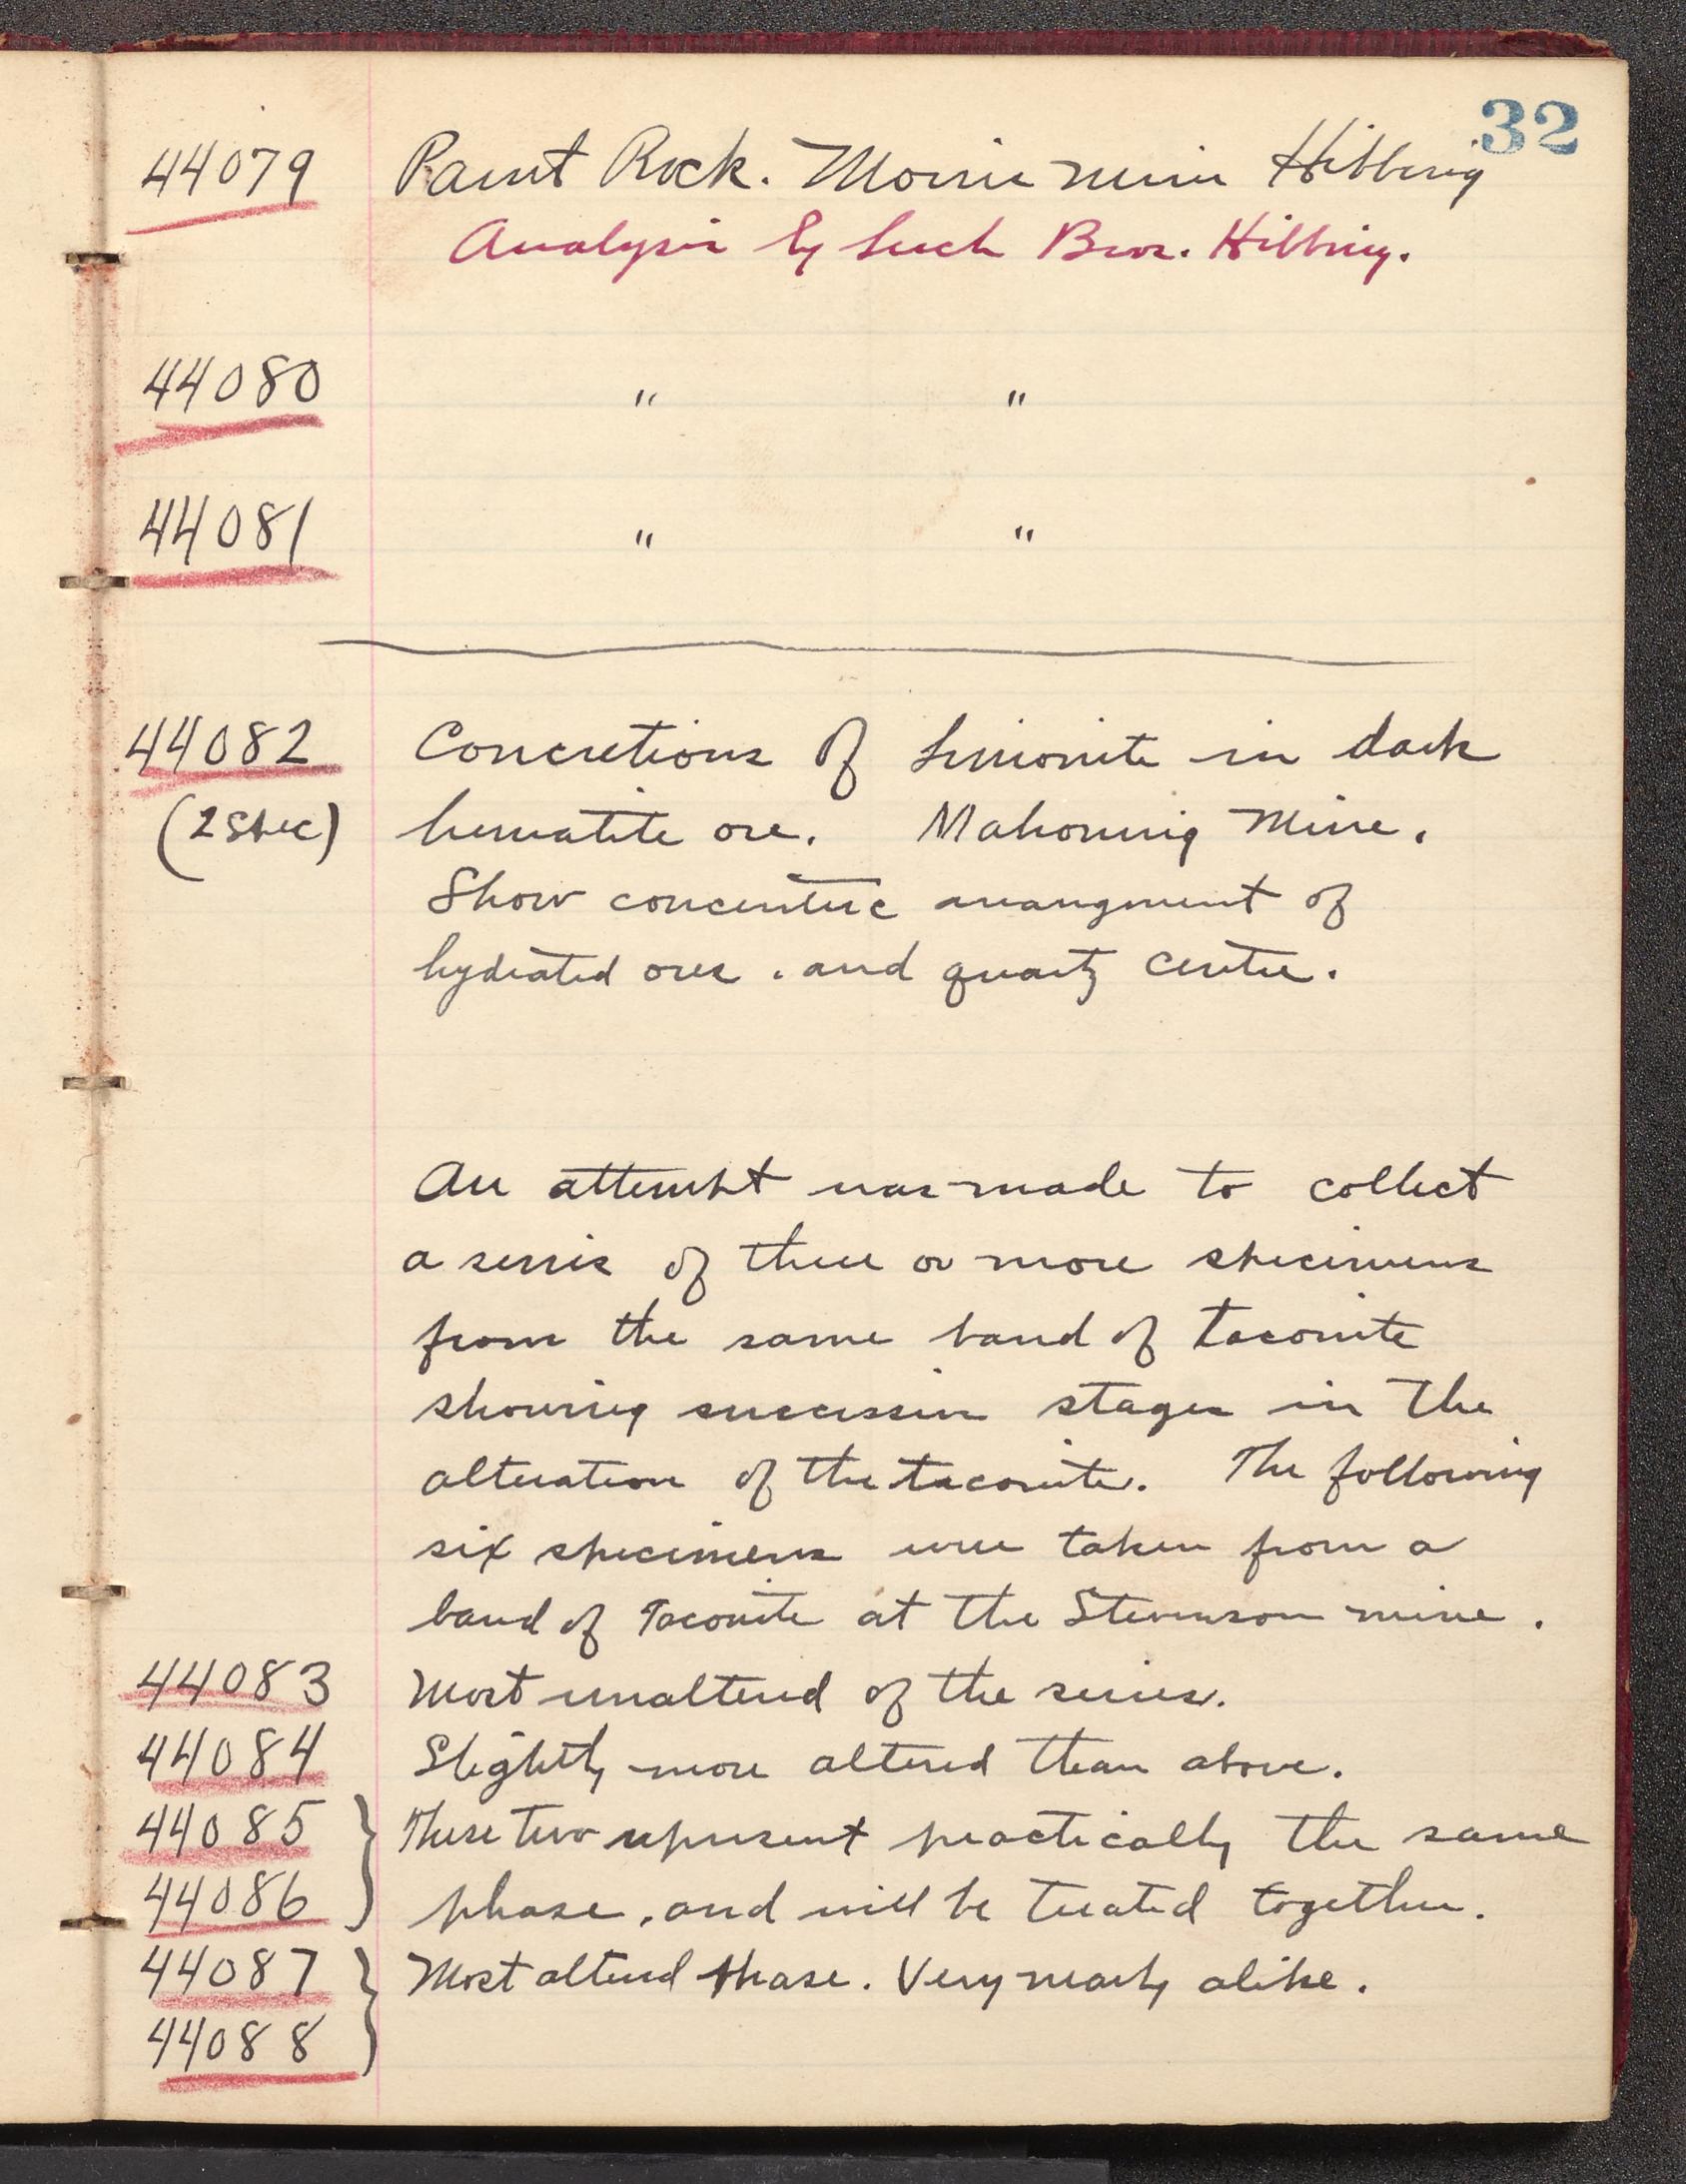 32
44079 Paint Rock. Morris mine Hibbing
Analysis by Lerch Bros. Hibbing.
44080 " "
44081 " "
44082 Concretions of limonite in dark
(2 spec) hematite ore. Mahoning Mine.
Show concentric arrangment of
hydrated ores . and quartz centre.
An attempt was made to collect
a series of three or more specimens
from the same band of taconite
showing successive stages in the
alteration of the taconite. The following
six specimens were taken from a
band of Taconite at the Stevenson mine.
44083 Most unaltered of the series.
44084 Slightly more altered than above.
44085 } These two represent practically the same
44086 phase, and will be treated together.
44087 } Most altered phase. Very nearly alike.
44088